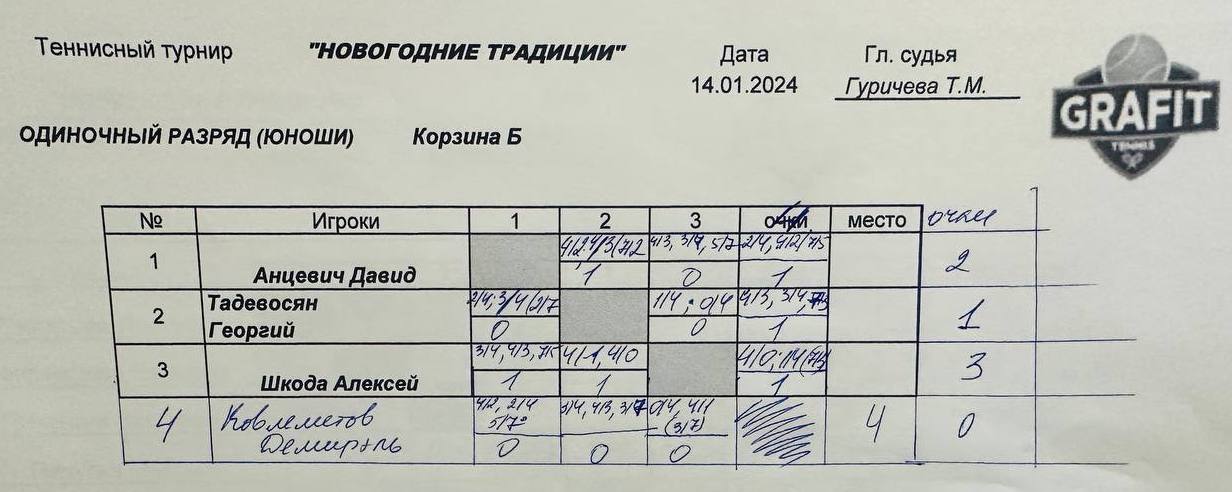 Теннисный турнир "НОВОГОДНИЕ ТРАДИЦИИ" Дата Гл. судья
14.01.2024 Гуричева Т.М.
GRAFIT
TENNIS
ОДИНОЧНЫЙ РАЗРЯД (ЮНОШИ) Корзина Б
№ Игроки 1 2 3 очки место очки
4/2 4/3 7/2 4/3, 3/4, 5/7 2/4, 4/2, 7/5
1 Анцевич Давид 1 0 1 2
Тадевосян 2/4; 3/4 (2/7 1/4; 0/4 4/3, 3/4,
2 Георгий 0 0 1 1
3/4, 4/3, 7/5 4/1, 4/0 4/0; 1/4
3 Шкода Алексей 1 1 1 3
4 4/2, 2/4 3/4, 4/3, 3/7 0/4, 4/1 4 0
5/7 (3/7)
Демирэль 0 0 0